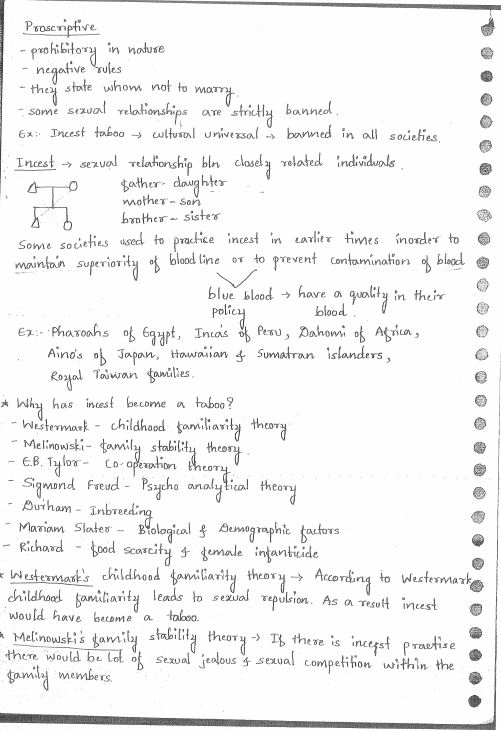 Proscriptive
- prohibitory in nature
- negative rules
- they state whom not to marry.
- some sexual relationships are strictly banned.
Ex:- Incest taboo → cultural universal → banned in all societies.
Incest → sexual relationship b/n closely related individuals.
father - daughter
mother - son
brother - sister
Some societies used to practice incest in earlier times inorder to
maintain superiority of blood line or to prevent contamination of blood
blue blood → have a quality in their
policy blood.
Ex:- Pharoahs of Egypt, Inca's of Peru, Dahomi of Africa,
Aino's of Japan, Hawaiian & Sumatran islanders,
Royal Taiwan families.
* Why has incest become a taboo?
- Westermark - childhood familiarity theory
- Melinowski - family stability theory.
- E.B. Tylor - Co-operation theory
- Sigmond Freud - Psycho analytical theory
- Durham - Inbreeding
- Mariam Slater - Biological & Demographic factors
- Richard - food scarcity & female infanticide
* Westermark's childhood familiarity theory → According to Westermark
childhood familiarity leads to sexual repulsion. As a result incest
would have become a taboo.
* Melinowski's family stability theory → If there is incest practise
there would be lot of sexual jealous & sexual competition within the
family members.